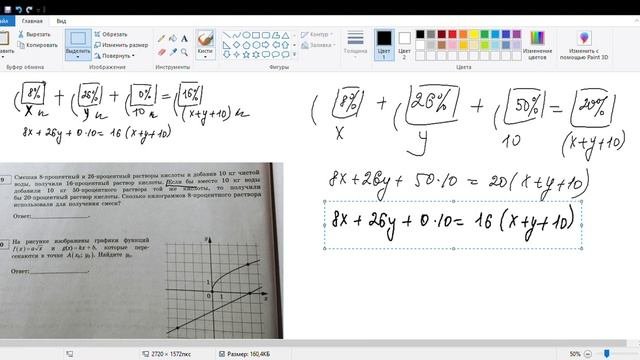 Файл
Главная
Вид
Вырезать
Копировать
Обрезать
Изменить размер
Повернуть
Выделить
Кисти
Контур
Заливка
Толщина
Цвет 1
Цвет 2
Изменение цветов
Изменить с помощью Paint 3D
Буфер обмена
Изображение
Инструменты
Фигуры
Цвета
(8% + (26% + (0% = (16%
x кг y кг 10 кг (x+y+10) кг
8x + 26y + 0·10 = 16 (x+y+10)
(8% + (26% + (50% = 20%
x y 10 (x+y+10)
8x+26y + 50·10 = 20(x+y+10)
8x + 26y + 0·10 = 16 (x+y+10)
9 Смешав 8-процентный и 26-процентный растворы кислоты и добавив 10 кг чистой
воды, получили 16-процентный раствор кислоты. Если бы вместо 10 кг воды
добавили 10 кг 50-процентного раствора той же кислоты, то получили
бы 20-процентный раствор кислоты. Сколько килограммов 8-процентного раствора
использовали для получения смеси?
Ответ:
0 На рисунке изображены графики функций
f(x)=a√x и g(x)=kx+b, которые пере-
секаются в точке A(x₀; y₀). Найдите y₀.
Ответ:
y
1
0 1 x
2720 × 1572пкс
Размер: 160,4КБ
50%